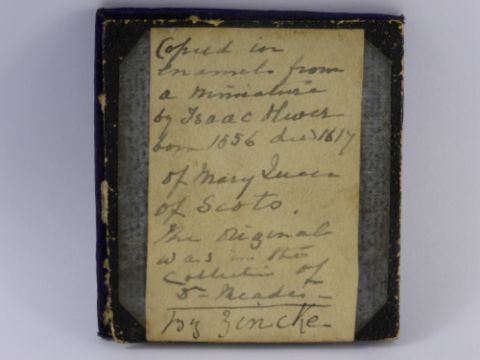 Copied in
enamels from
a miniature
by Isaac Oliver
born 1556 died 1617
of Mary Queen
of Scots.
The original
was in the
Collection of
Dr Meade
by Zincke